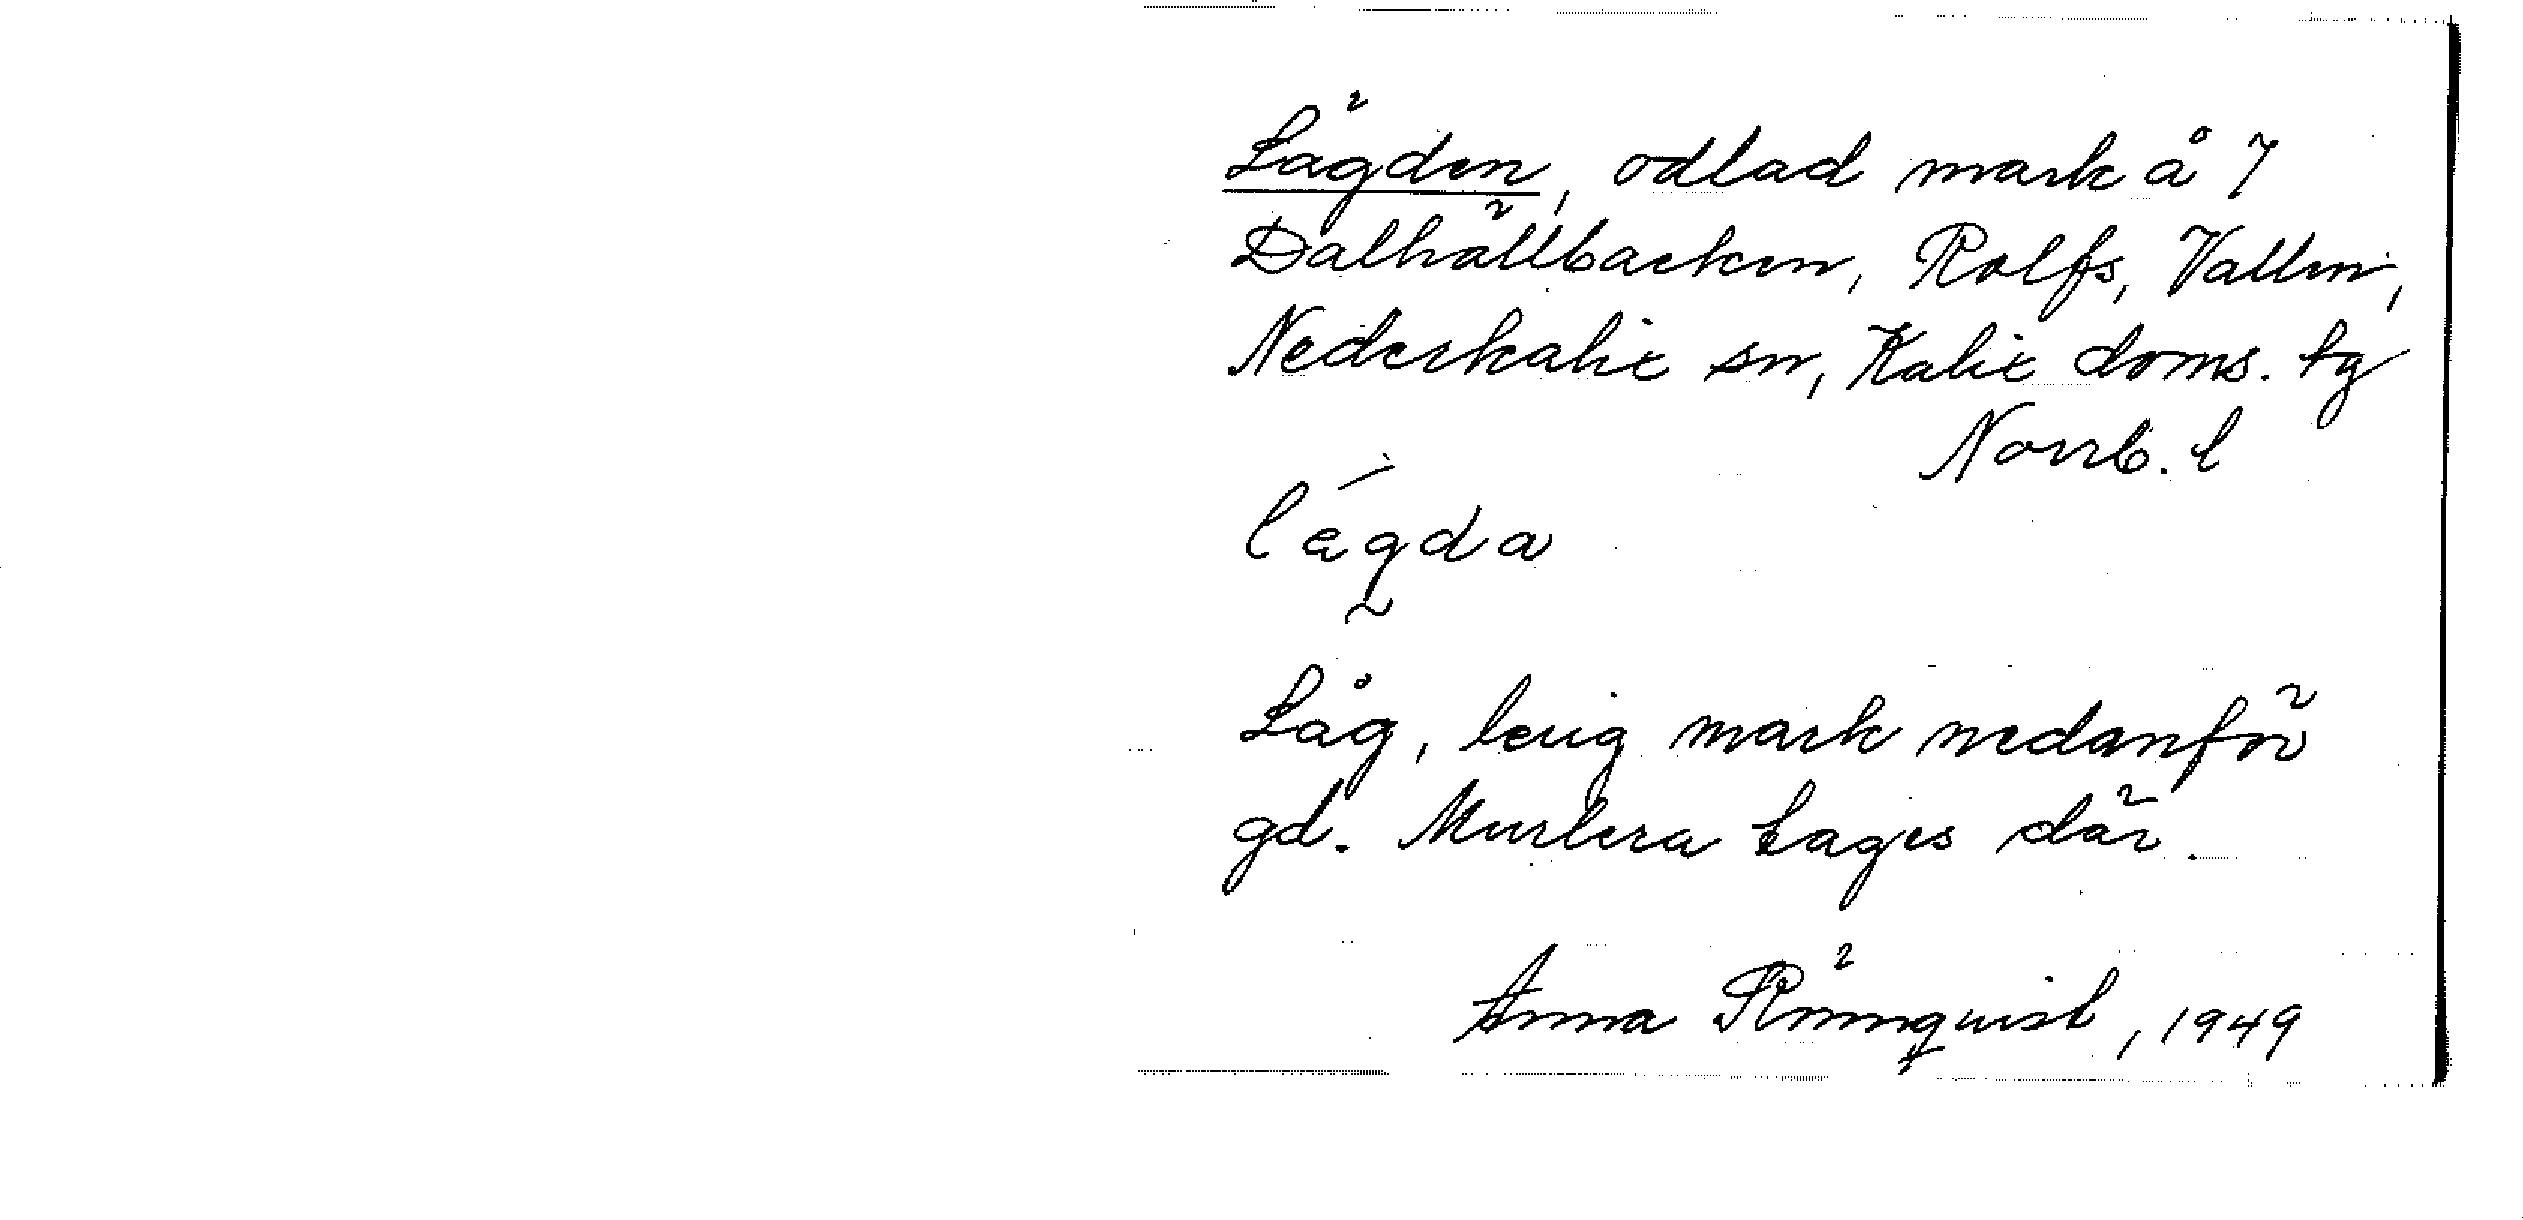 Lägden, odlad mark å 7
Dalhällbacken, Rolfs, Vallen,
Nederkalix sn, Kalix doms. tg
Norrb. l
lägda
Låg, lerig mark nedanför
gd. Murlera tages där.
Anna Rönnquist, 1949